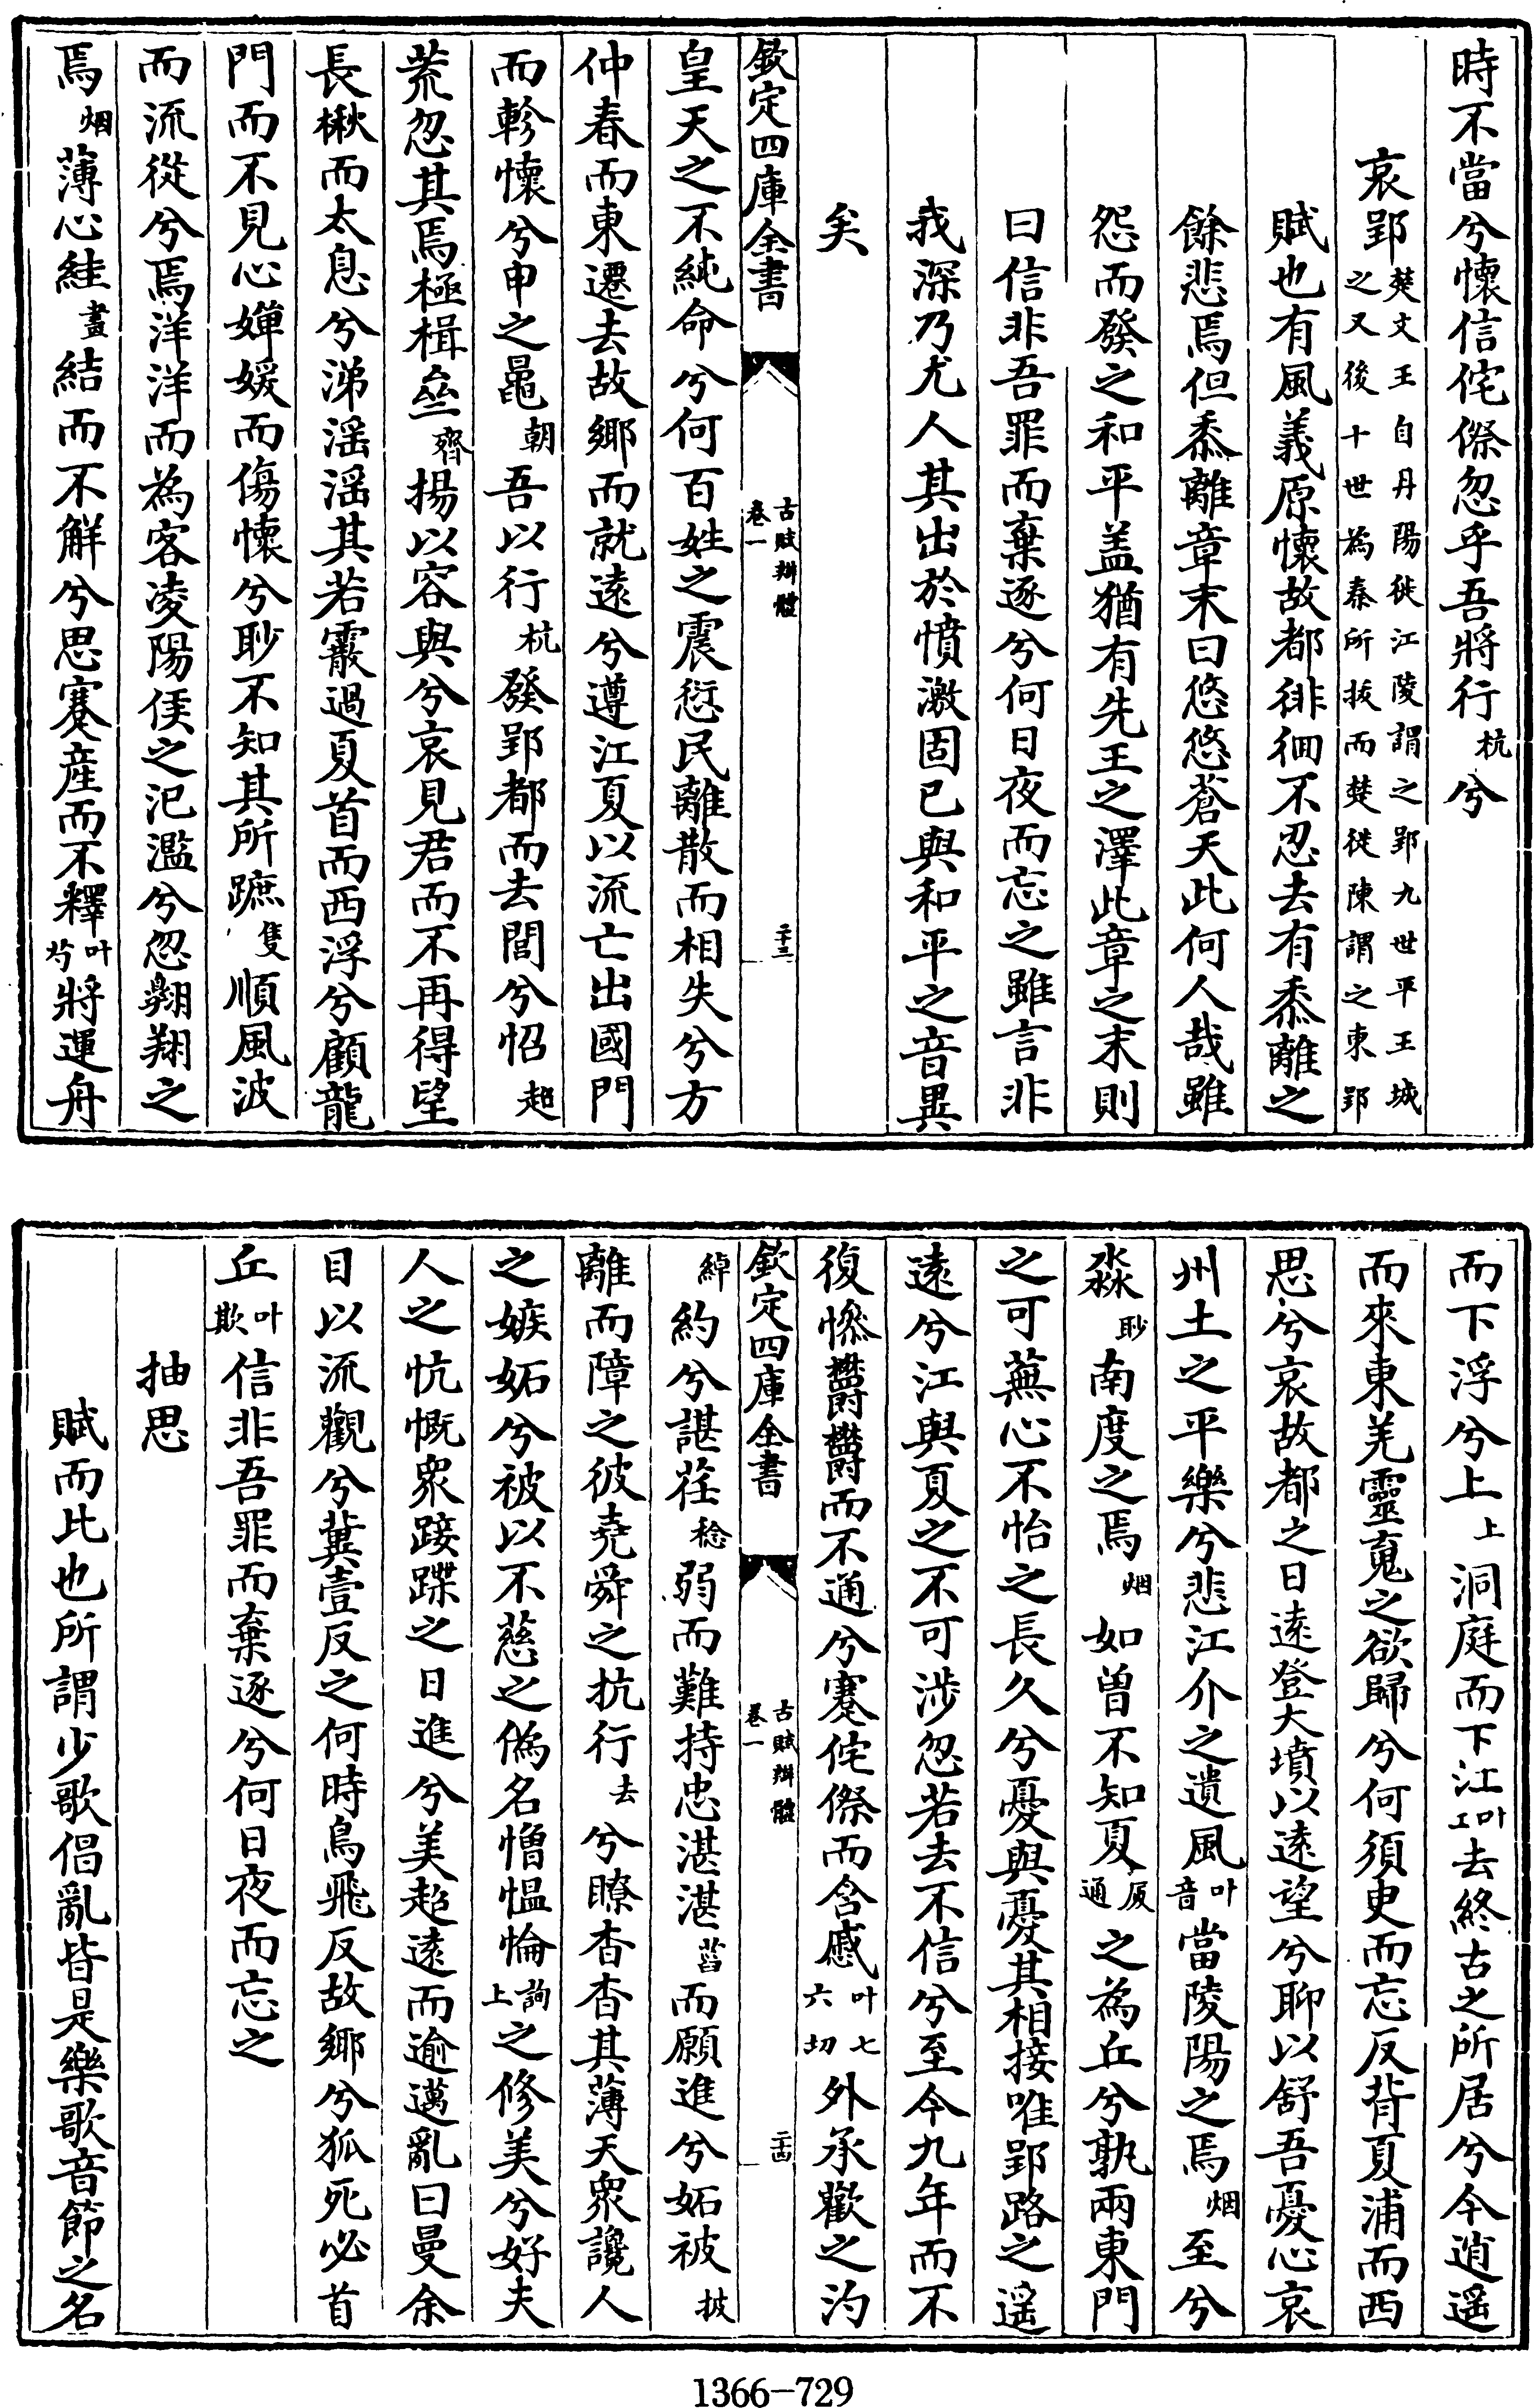 時不當兮懷信侘傺忽乎吾將行杭兮
哀郢楚文王自丹陽徙江陵謂之郢九世平王城之又後十世為秦所拔而楚徙陳謂之東郢
賦也有風義原懷故都徘徊不忍去有黍離之
餘悲焉但黍離章末曰悠悠蒼天此何人哉雖
怨而發之和平盖猶有先王之澤此章之末則
曰信非吾罪而棄逐兮何日夜而忘之雖言非
我深乃尤人其出於憤激固已與和平之音異
矣
欽定四庫全書 古賦辨體卷一 二十三
皇天之不純命兮何百姓之震愆民離散而相失兮方
仲春而東遷去故鄉而就遠兮遵江夏以流亡出國門
而軫懷兮申之鼂朝吾以行杭發郢都而去閭兮怊超
荒忽其焉極楫㕘齊揚以容與兮哀見君而不再得望
長楸而太息兮涕淫淫其若霰過夏首而西浮兮顧龍
門而不見心嬋媛而傷懷兮眇不知其所蹠隻順風波
而流從兮焉洋洋而為客凌陽侯之氾濫兮忽翱翔之
焉烟薄心絓畫結而不解兮思蹇產而不釋叶芍將運舟
而下浮兮上上洞庭而下江叶工去終古之所居兮今逍遥
而來東羌靈䰟之欲歸兮何須臾而忘反背夏浦而西
思兮哀故都之日遠登大墳以遠望兮聊以舒吾憂心哀
州土之平樂兮悲江介之遺風叶音當陵陽之焉烟至兮
淼眇南度之焉烟如曽不知夏厦通之為丘兮孰兩東門
之可蕪心不怡之長久兮憂與憂其相接唯郢路之遥
遠兮江與夏之不可涉忽若去不信兮至今九年而不
復慘欝欝而不通兮蹇侘傺而含慼叶七六切外承歡之汋
欽定四庫全書 古賦辨體卷一 二十四
綽約兮諶荏稔弱而難持忠湛湛萏而願進兮妬被披
離而障之彼堯舜之抗行去兮瞭杳杳其薄天衆讒人
之嫉妬兮被以不慈之偽名憎愠惀詢上之修美兮好夫
人之忼慨衆踥蹀之日進兮美超遠而逾邁亂曰曼余
目以流觀兮兾壹反之何時鳥飛反故鄉兮狐死必首
丘叶欺信非吾罪而棄逐兮何日夜而忘之
抽思
賦而比也所謂少歌倡亂皆是樂歌音節之名
1366-729